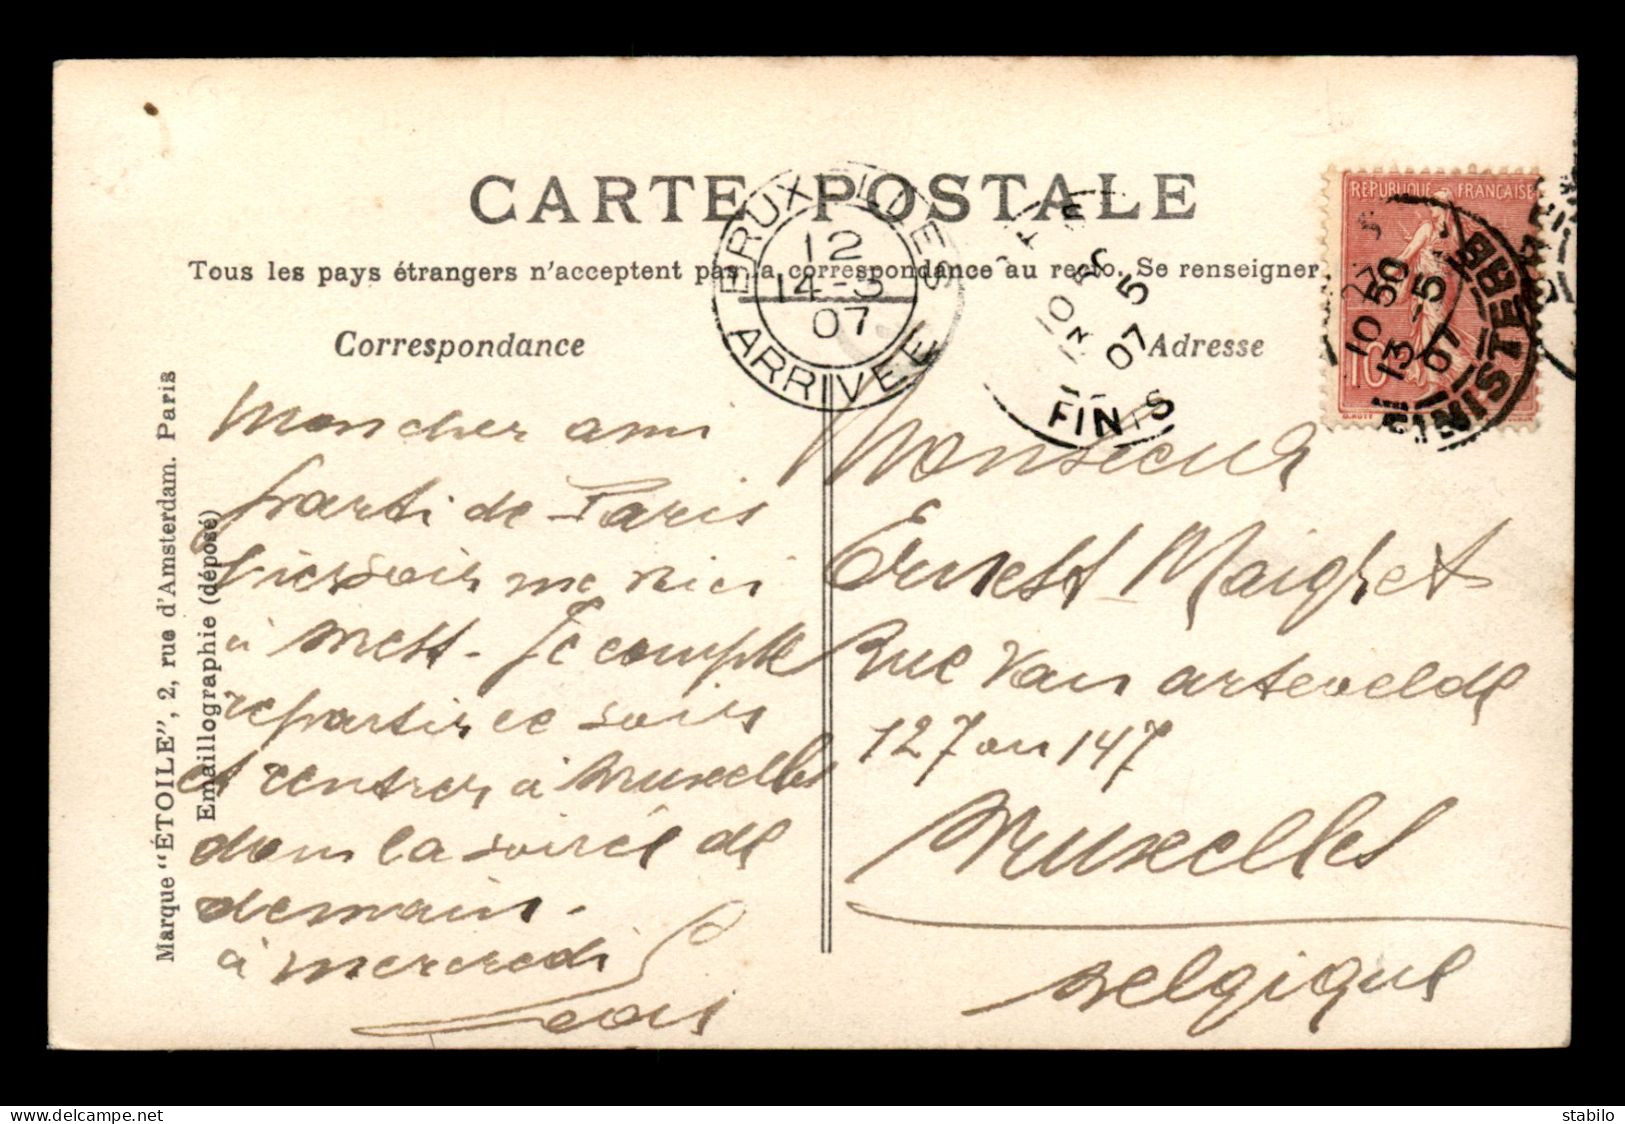 CARTE POSTALE
Tous les pays étrangers n'acceptent pas la correspondance au recto. Se renseigner
Correspondance
Adresse
Marque "ÉTOILE", 2, rue d'Amsterdam. Paris
Emaillographie (déposé)
RÉPUBLIQUE FRANÇAISE
10
BRUXELLES
12
14-5
07
ARRIVÉE
BREST
10 50
13 5
07
FINISTERE
10 50
13 -5
07
FINISTERE
Mon cher ami
parti de Paris
hier soir me voici
à Brest. Je compte
repartir ce soir
et rentrer à Bruxelles
dans la soirée de
demain.
à mercredi
Monsieur
Ernest Maigret
Rue Van artevelde
127 ou 147
Bruxelles
Belgique
stabilo